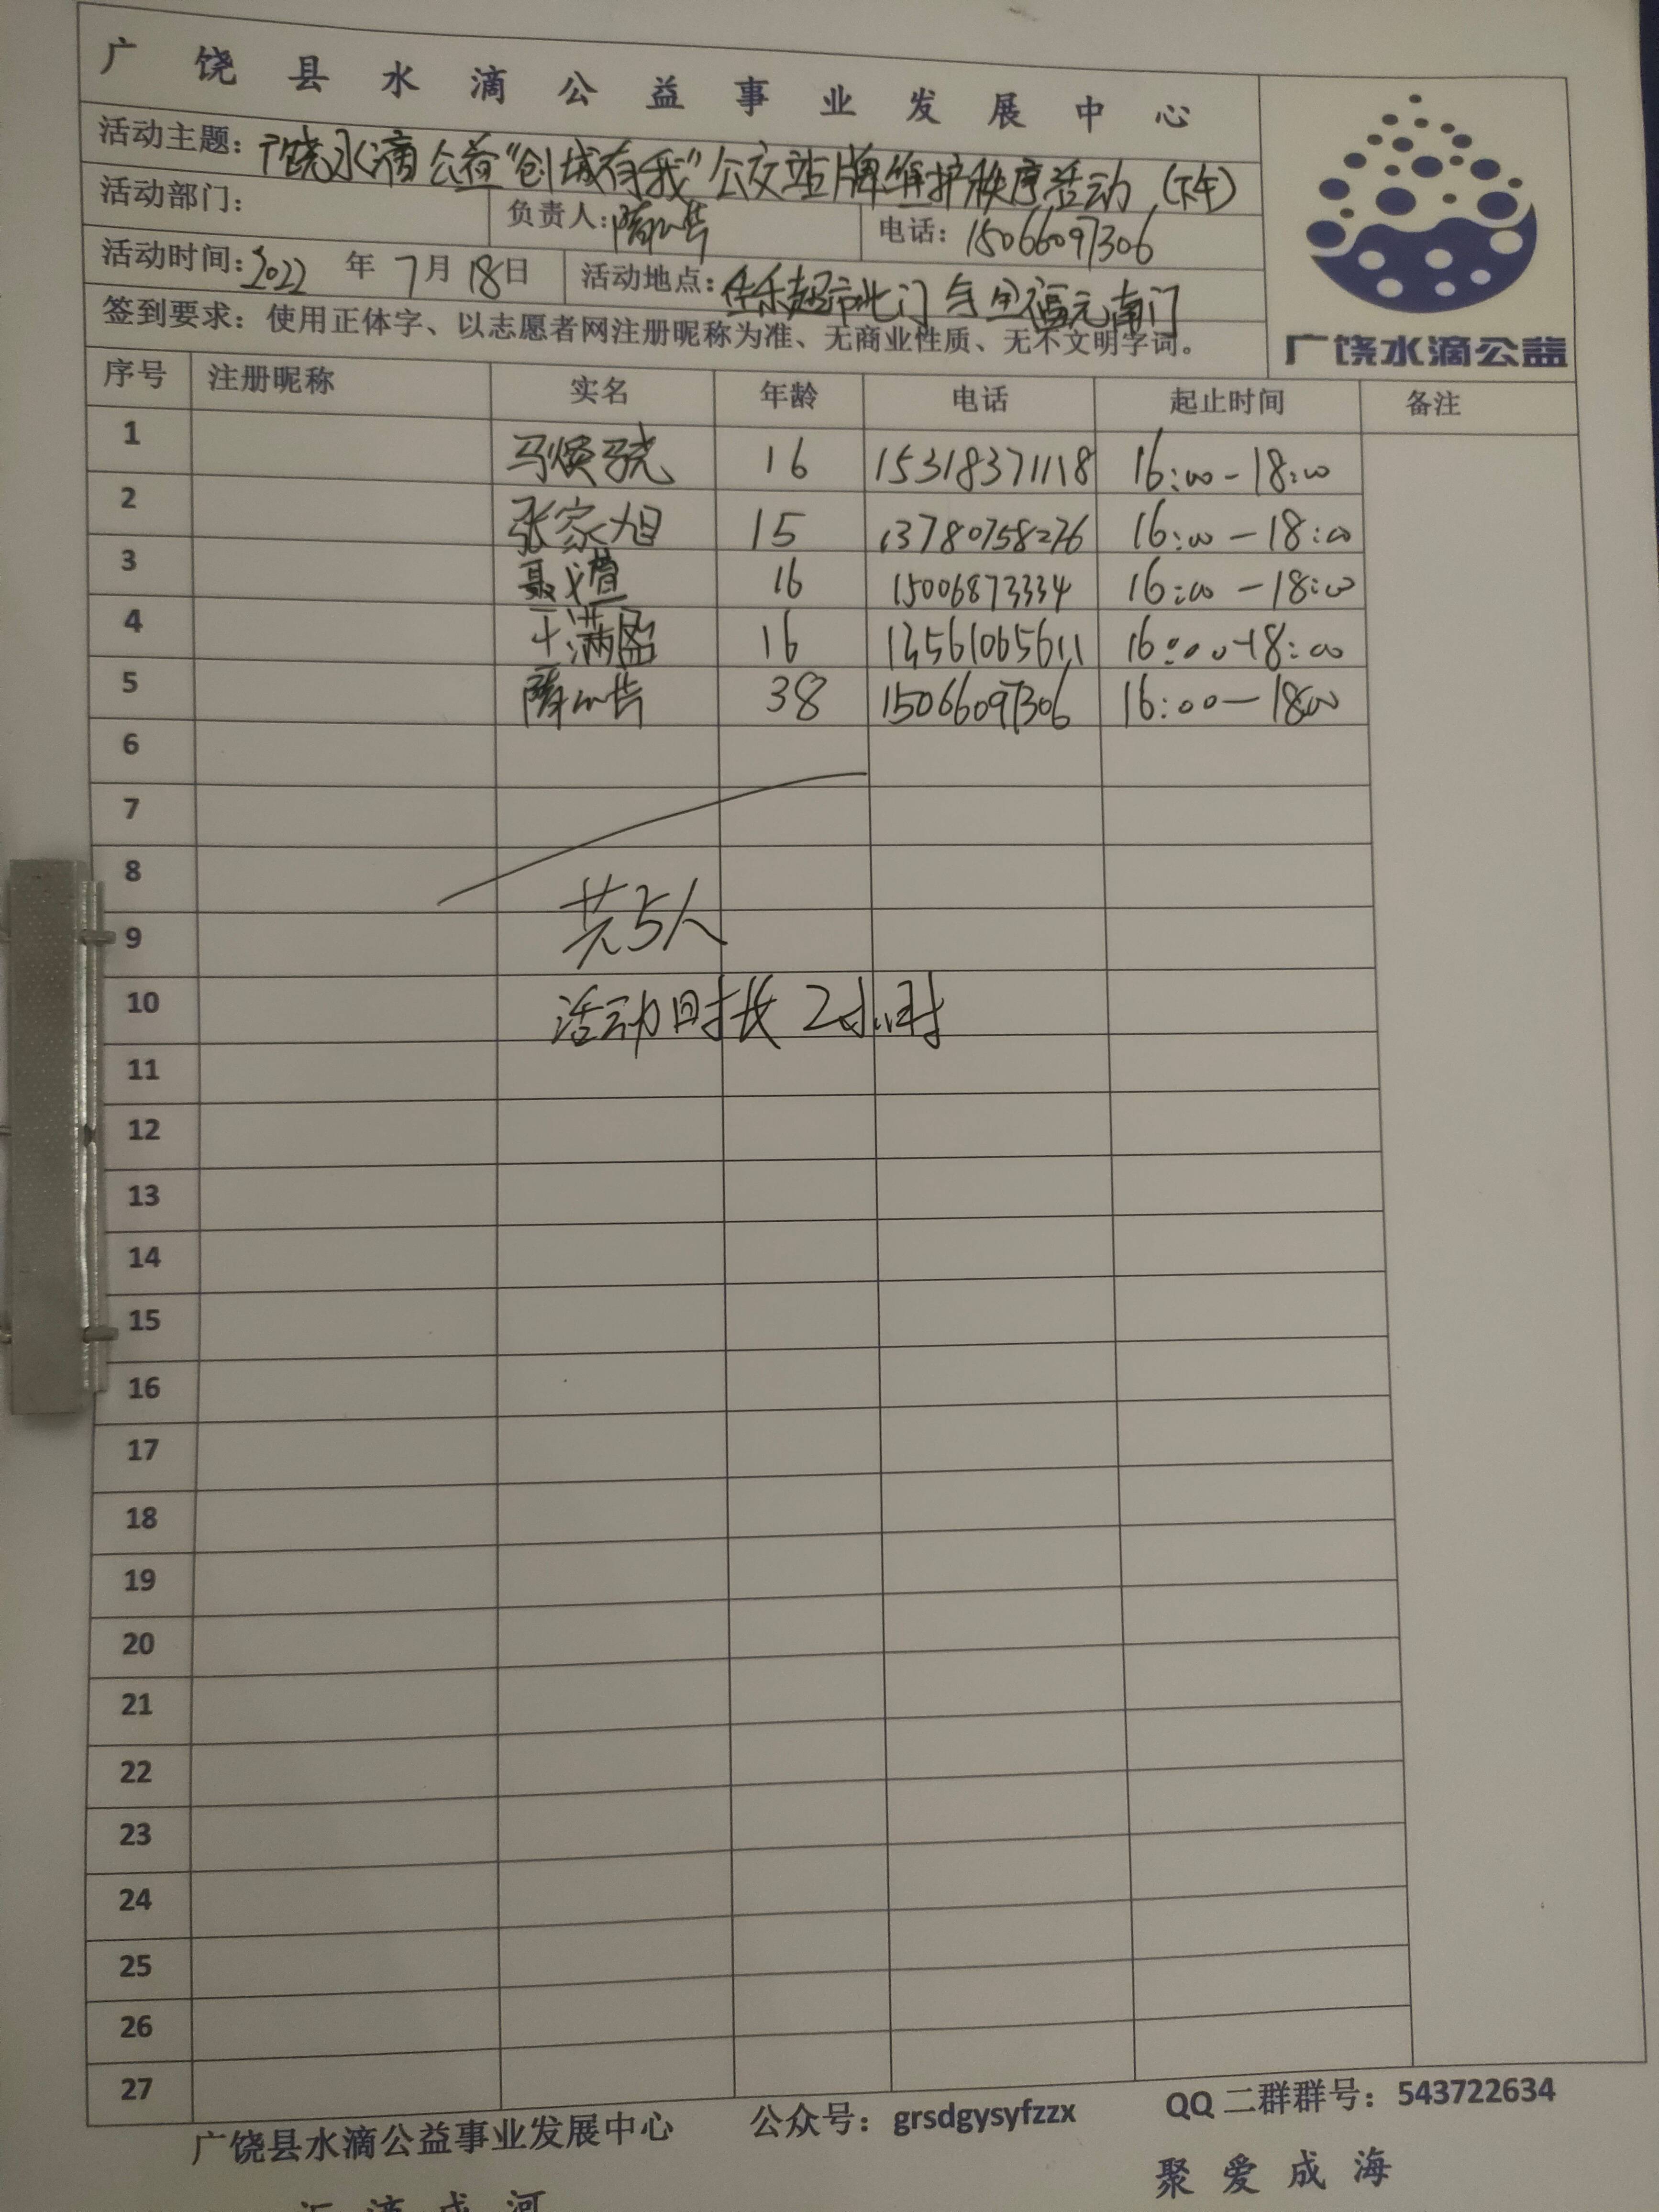 广饶县水滴公益事业发展中心
活动主题：广饶水滴公益"创城有我"公交站牌维护秩序活动（下午）
活动部门： 负责人： 电话：15066097306
活动时间：2022年7月18日 活动地点：佳乐超市北门与 福元南门
签到要求：使用正体字、以志愿者网注册昵称为准、无商业性质、无不文明字词。
广饶水滴公益
序号 注册昵称 实名 年龄 电话 起止时间 备注
1 马焕骁 16 15318371118 16:00-18:00
2 张家旭 15 13780758276 16:00-18:00
3 16 15006873334 16:00-18:00
4 王满盈 16 16:00-18:00
5 38 15066097306 16:00-1800
6
7
8
9 共5人
10 活动时长2小时
11
12
13
14
15
16
17
18
19
20
21
22
23
24
25
26
27
广饶县水滴公益事业发展中心 公众号：grsdgysyfzzx QQ二群群号：543722634
汇滴成河 聚爱成海